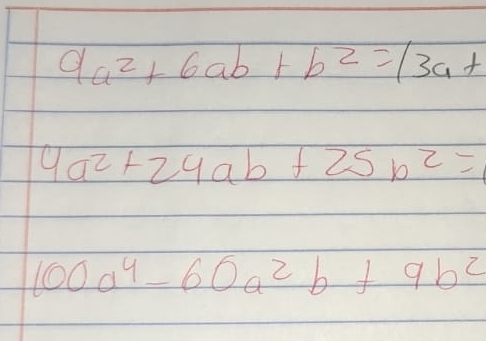 9a² + 6ab + b² = (3a +
4a² + 24ab + 25b² = (
100a⁴ - 60a²b + 9b²